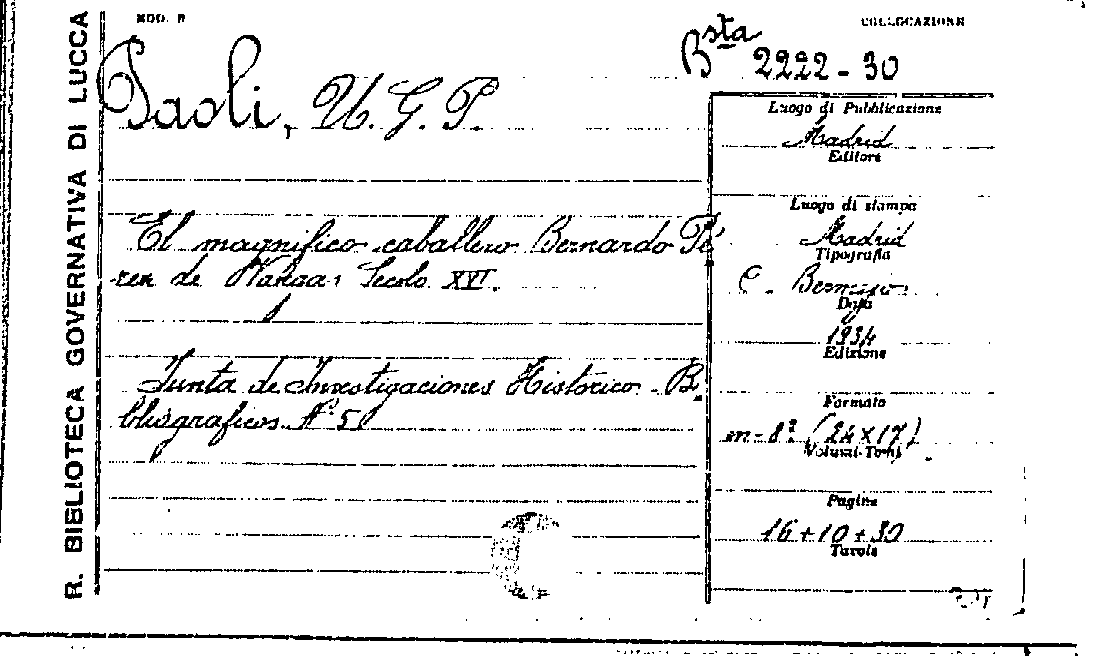 MOD. B
COLLOCAZIONE
R. BIBLIOTECA GOVERNATIVA DI LUCCA
Bsta 2222-30
Paoli, U. G. P.
Luogo di Pubblicazione
Madrid
Editore
El magnifico caballero Bernardo Pé
rez de Vargas Secolo XVI.
Luogo di stampa
Madrid
Tipografia
C. Bermejo
Data
1934
Edizione
Junta de Investigaciones Historico-Bi
bliograficos N° 5
Formato
in-8° (24×17)
Volumi-Tomi
Pagine
16+10+30
Tavole